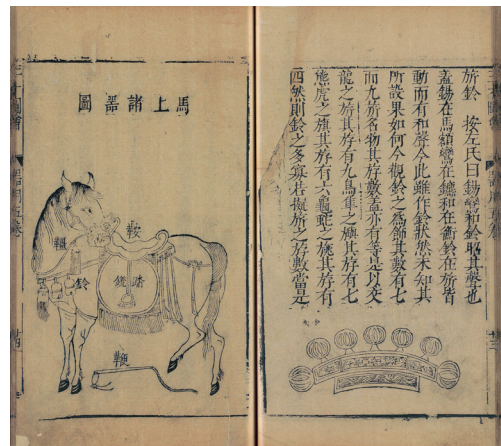 旂鈴 按左氏曰鍚鸞和鈴昭其聲也
蓋鍚在馬額鸞在鑣和在衡鈴在旂皆
動而有和聲今此雖作鈴狀然未知其
所設果如何今觀鈴之爲飾其數有七
而九旂名物其斿數蓋亦有等是以交
龍之旂其斿有九鳥隼之旟其斿有七
熊虎之旗其斿有六龜蛇之旐其斿有
四然則鈴之多寡若擬旂之斿數當是
馬上諸噐圖
鞍
韁
鈴
鐙
鞭